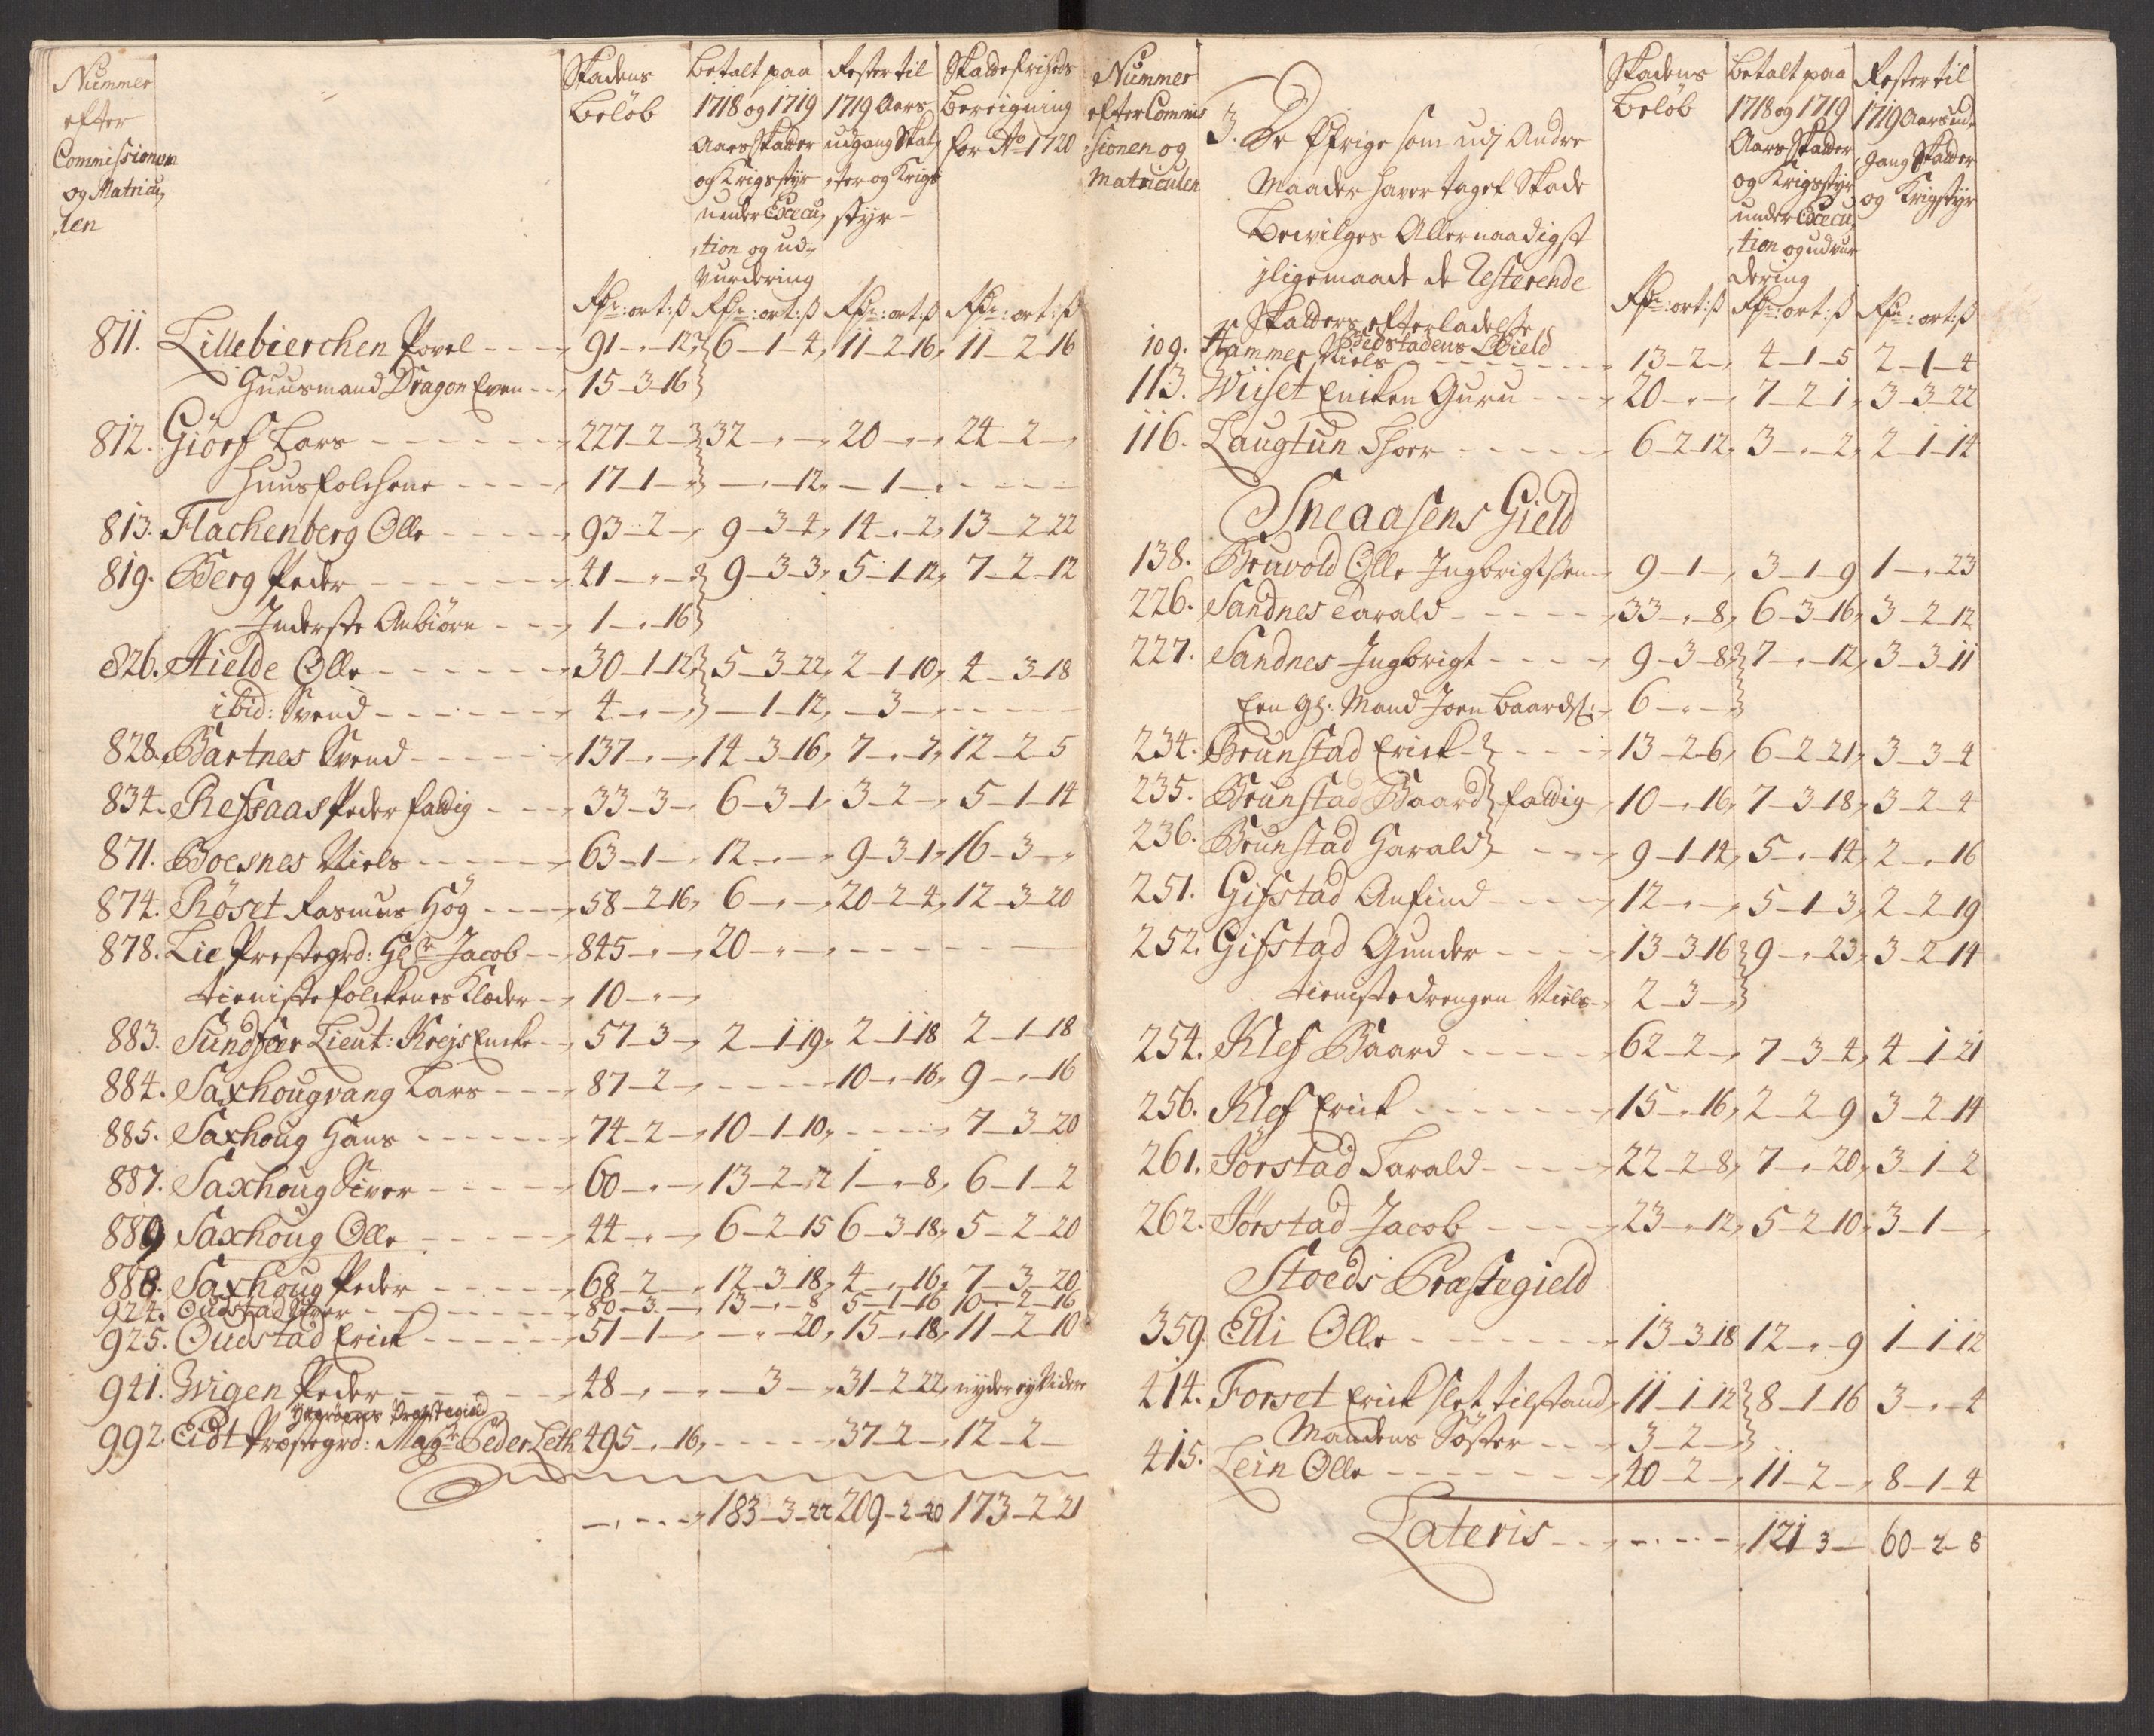 Nummer
efter
Commissionen
og Matricu,
len
Skadens
Beløb
Betalt paa
1718 og 1719
Aars Skatter
og Krigsstyr
under Execu,
,tion og ud-
vurdering
Rester til
1719 Aars
udgang Skat,
,ter og Krigs
styr -
Skattefriheds
Beregning
for Ao 1720
Rdr: ort: ß Rdr: ort: ß Rdr: ort: ß Rdr: ort: ß
811. Lillebierchen Povel - - 91 - „ - 12 6 - 1 - 4, 11 - 2 - 16, 11 - 2 - 16
Huusmand Dragon Even - - 15 - 3 - 16
812. Giörf Lars - - - 227 - 2 - 32 - „ - „ 20 - „ - „ 24 - 2 - „
Huusfolchene - - - 17 - 1 - „ - „ - 12, - 1 - „ - - -
813. Flachenberg Olle - - - 93 - 2 - „ 9 - 3 - 4, 14 - „ - 2, 13 - 2 - 22
819. Berg Peder - - - 41 - „ - „ 9 - 3 - 3, 5 - 1 - 12, 7 - 2 - 12
Inderste Anbiörn - - 1 - „ - 16
826. Hielde Olle - - - 30 - 1 - 12 5 - 3 - 22, 2 - 1 - 10, 4 - 3 - 18
ibid: Svend - - - 4 - „ - „ - 1 - 12, - 3 - „ - - -
828. Bartnes Svend - - - 137 - „ - „ 14 - 3 - 16, 7 - „ - 7, 12 - 2 - 5
834. Ressaas Peder fattig - - 33 - 3 - „ 6 - 3 - 1, 3 - 2 - „ 5 - 1 - 14
871. Boesnes Niels - - - 63 - 1 - „ 12 - „ - „ 9 - 3 - 1, 16 - 3 - „
874. Röset Rasmus Hög - - 58 - 2 - 16, 6 - „ - „ 20 - 2 - 4, 12 - 3 - 20
878. Lie Prestegrd: Hr Jacob - - 845 - „ - „ 20 - „ - „ - - -
tieniste folckenes Klæder - 10 - „ - „
883. Sundfær Lieut: Krejs Encke - - 57 - 3 - „ 2 - 1 - 19, 2 - 1 - 18 2 - 1 - 18
884. Saxhougvang Lars - - 87 - 2 - „ - - - 10 - „ - 16, 9 - „ - 16
885. Saxhoug Hans - - - 74 - 2 - „ 10 - 1 - 10, - - - 7 - 3 - 20
887. Saxhoug Siver - - - 60 - „ - „ 13 - 2 - 12 1 - „ - 8, 6 - 1 - 2
889 Saxhoug Olle - - - 44 - „ - „ 6 - 2 - 15 6 - 3 - 18, 5 - 2 - 20
888. Saxhoug Peder - - - 68 - 2 - „ 12 - 3 - 18, 4 - „ - 16, 7 - 3 - 20
924. Oudstad Iver - - - 80 - 3 - „ 13 - „ - 8 5 - 1 - 16 10 - 2 - 16
925. Oudstad Erick - - - 51 - 1 - „ - „ - 20, 15 - „ - 18, 11 - 2 - 10
941. Wigen Peder - - - 48 - „ - „ - 3 - „ 31 - 2 - 22, nyder ey videre
Ytterøens Præstegield
992. Eidt Præstegrd: Magr Peder Leth 495 - „ - 16, - - - 37 - 2 - „ 12 - 2 -
- „ - „ 183 - 3 - 22 209 - 2 - 20 173 - 2 - 21
Nummer
efter Commis
sionen og
Matriculen
3. De Øfrige som udj Andre
Maader haver taget Skade
Bevilges Allernaadigst
jligemaade de Resterende
Skatters efterladelse
Skadens
Beløb
Betalt paa
1718 og 1719
Aars Skatter
og Krigsstyr
under Execu,
,tion og udvur
dering
Rester til
1719 Aars ud,
,gang Skatter
og Krigsstyr
Rdr: ort: ß Rdr: ort: ß Rdr: ort: ß
Bedstadens Gield
109. Hammer Niels - - - 13 - 2 - „ 4 - 1 - 5 2 - 1 - 4
113. Wiiset Encken Guru - - 20 - „ - „ 7 - 2 - 1, 3 - 3 - 22
116. Laugtun Thoer - - - 6 - 2 - 12, 3 - „ - 2, 2 - 1 - 14
Sneaasens Gield
138. Bruvold Olle Ingbrigtsen - 9 - 1 - „ 3 - 1 - 9 1 - „ - 23
226. Sandnes Tarald - - - 33 - „ - 8, 6 - 3 - 16, 3 - 2 - 12
227. Sandnes Ingbrigt - - - 9 - 3 - 8 7 - „ - 12, 3 - 3 - 11
Een gl: Mand Joen Baards: - 6 - „ - „
234. Brunstad Erick - - 13 - 2 - 6, 6 - 2 - 21, 3 - 3 - 4
235. Brunstad Baard fattig 10 - „ - 16, 7 - 3 - 18, 3 - 2 - 4
236. Brunstad Harald - - 9 - 1 - 14, 5 - „ - 14, 2 - „ - 16
251. Gifstad Anfind - - - 12 - „ - „ 5 - 1 - 3, 2 - 2 - 19
252. Gifstad Gunder - - - 13 - 3 - 16 9 - „ - 23, 3 - 2 - 14
tieniste drengen Niels - 2 - 3 - „
254. Klef Baard - - - 62 - 2 - „ 7 - 3 - 4, 4 - 1 - 21
256. Klef Erick - - - 15 - „ - 16, 2 - 2 - 9 3 - 2 - 14
261. Jörstad Tarald - - - 22 - 2 - 8, 7 - „ - 20, 3 - 1 - 2
262. Jörstad Jacob - - - 23 - „ - 12, 5 - 2 - 10, 3 - 1 - „
Stoeds Præstegield
359. Elli Olle - - - 13 - 3 - 18 12 - „ - 9 1 - 1 - 12
414. Forset Erick slet tilstand 11 - 1 - 12 8 - 1 - 16 3 - „ - 4
Mandens Söster - - 3 - 2 - „
415. Lein Olle - - - 40 - 2 - „ 11 - 2 - „ 8 - 1 - 4
Lateris - - - „ - „ 121 - 3 - 60 - 2 - 8